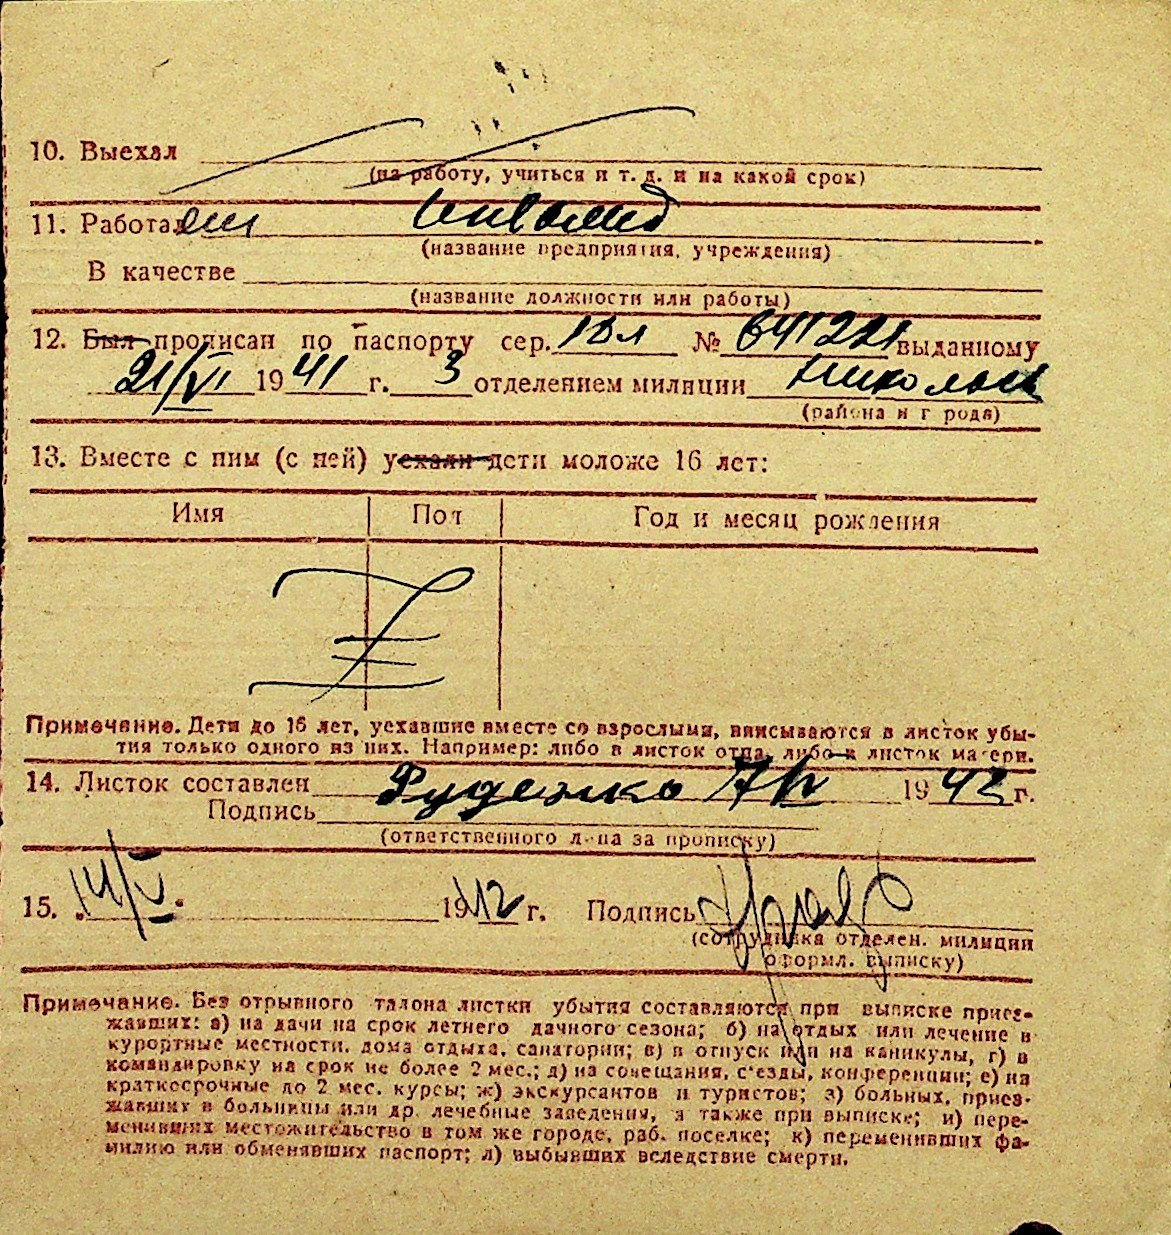 10. Выехал
(на работу, учиться и т. д. и на какой срок)
11. Работал инвалид
(название предприятия, учреждения)
В качестве
(название должности или работы)
12. Был прописан по паспорту сер. № 641221 выданному
21/VI 1941 г. 3 отделением милиции
(района и города)
13. Вместе с ним (с ней) уехали дети моложе 16 лет:
Имя Пол Год и месяц рождения
Примечание. Дети до 16 лет, уехавшие вместе со взрослыми, вписываются в листок убы-
тия только одного из них. Например: либо в листок отца, либо в листок матери.
14. Листок составлен Руденко 1942 г.
Подпись
(ответственного лица за прописку)
15. 14/V 1942 г. Подпись
(сотрудника отделен. милиции
оформл. выписку)
Примечание. Без отрывного талона листки убытия составляются при выписке приез-
жавших: а) на дачи на срок летнего дачного сезона; б) на отдых или лечение в
курортные местности, дома отдыха, санатории; в) в отпуск или на каникулы, г) в
командировку на срок не более 2 мес.; д) на совещания, с'езды, конференции; е) на
краткосрочные до 2 мес. курсы; ж) экскурсантов и туристов; з) больных, приез-
жавших в больницы или др. лечебные заведения, а также при выписке; и) пере-
менивших местожительство в том же городе, раб. поселке; к) переменивших фа-
милию или обменявших паспорт; л) выбывших вследствие смерти.